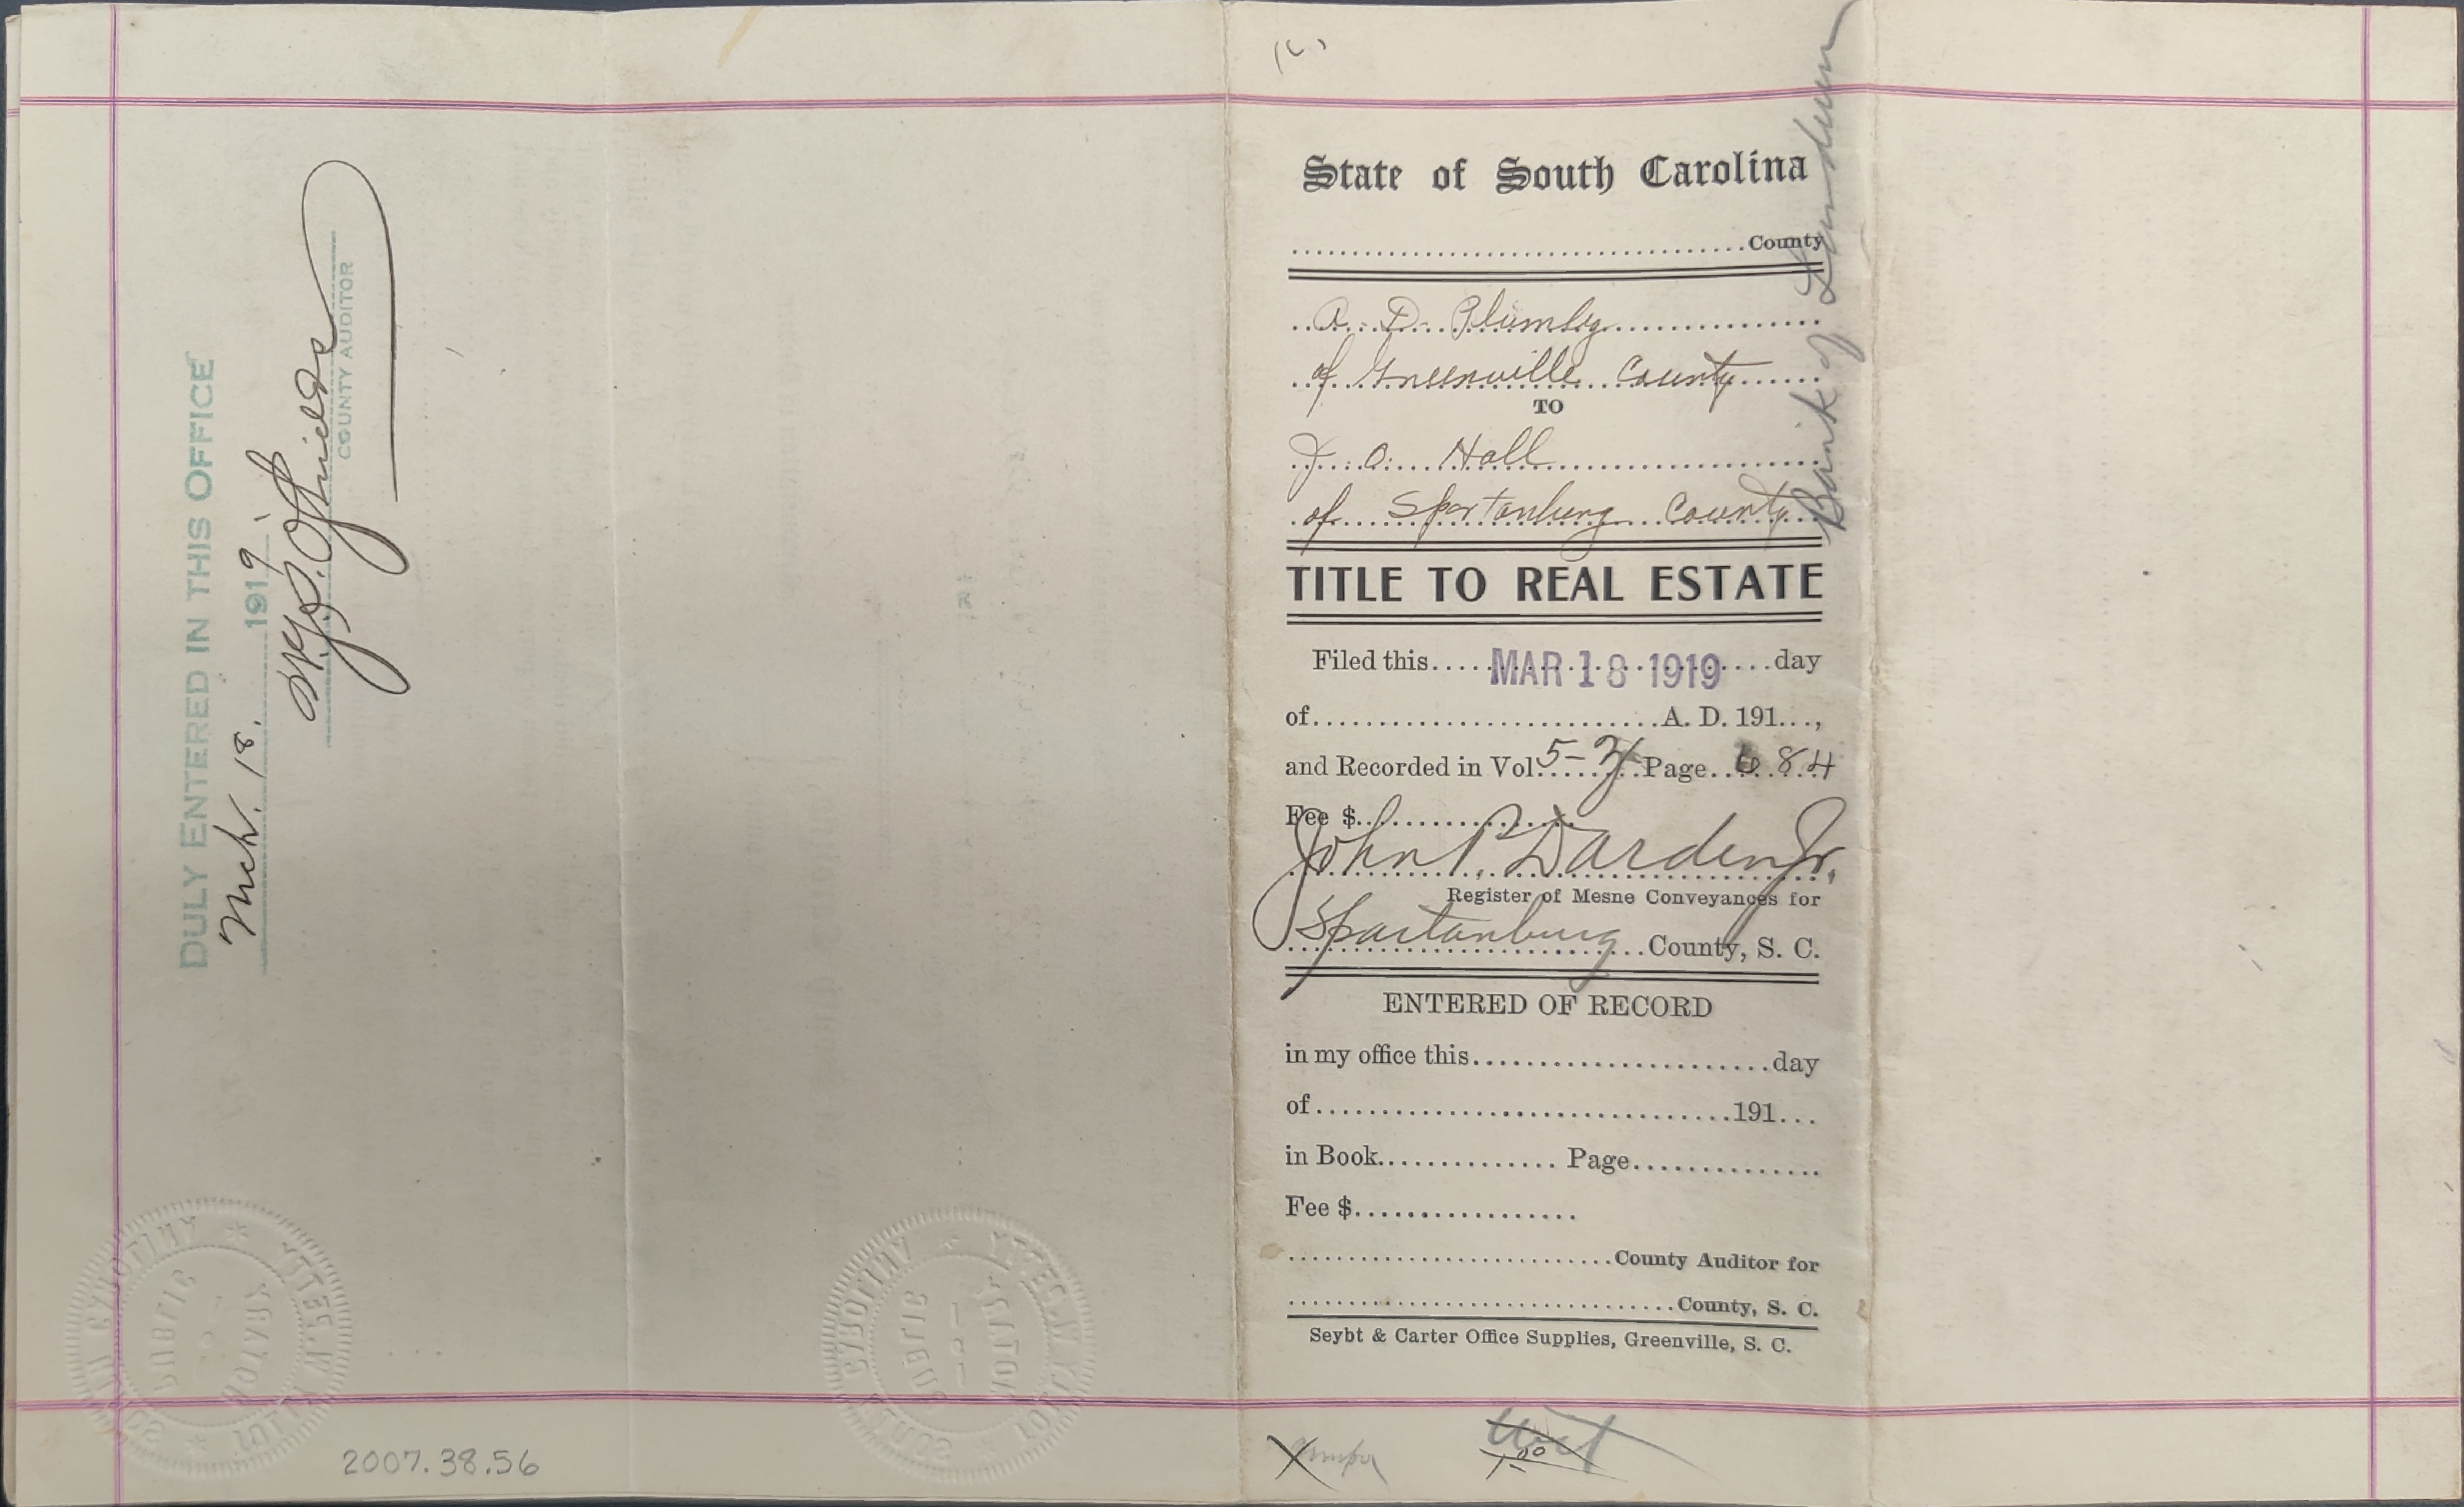 DULY ENTERED IN THIS OFFICE
Mch. 18. 1919
COUNTY AUDITOR
State of South Carolina
County
A. D. Plumley
of Greenville County
TO
J. O. Hall
of Spartanburg County
Bank of Landrum
TITLE TO REAL ESTATE
Filed this MAR 18 1919 day
of A. D. 191 ,
and Recorded in Vol. Page 684
Fee $
John P. Darden Jr.
Register of Mesne Conveyances for
Spartanburg County, S. C.
ENTERED OF RECORD
in my office this day
of 191
in Book Page
Fee $
County Auditor for
County, S. C.
Seybt & Carter Office Supplies, Greenville, S. C.
NOTARY PUBLIC
SOUTH CAROLINA
NOTARY PUBLIC
SOUTH CAROLINA
1.00
2007.38.56